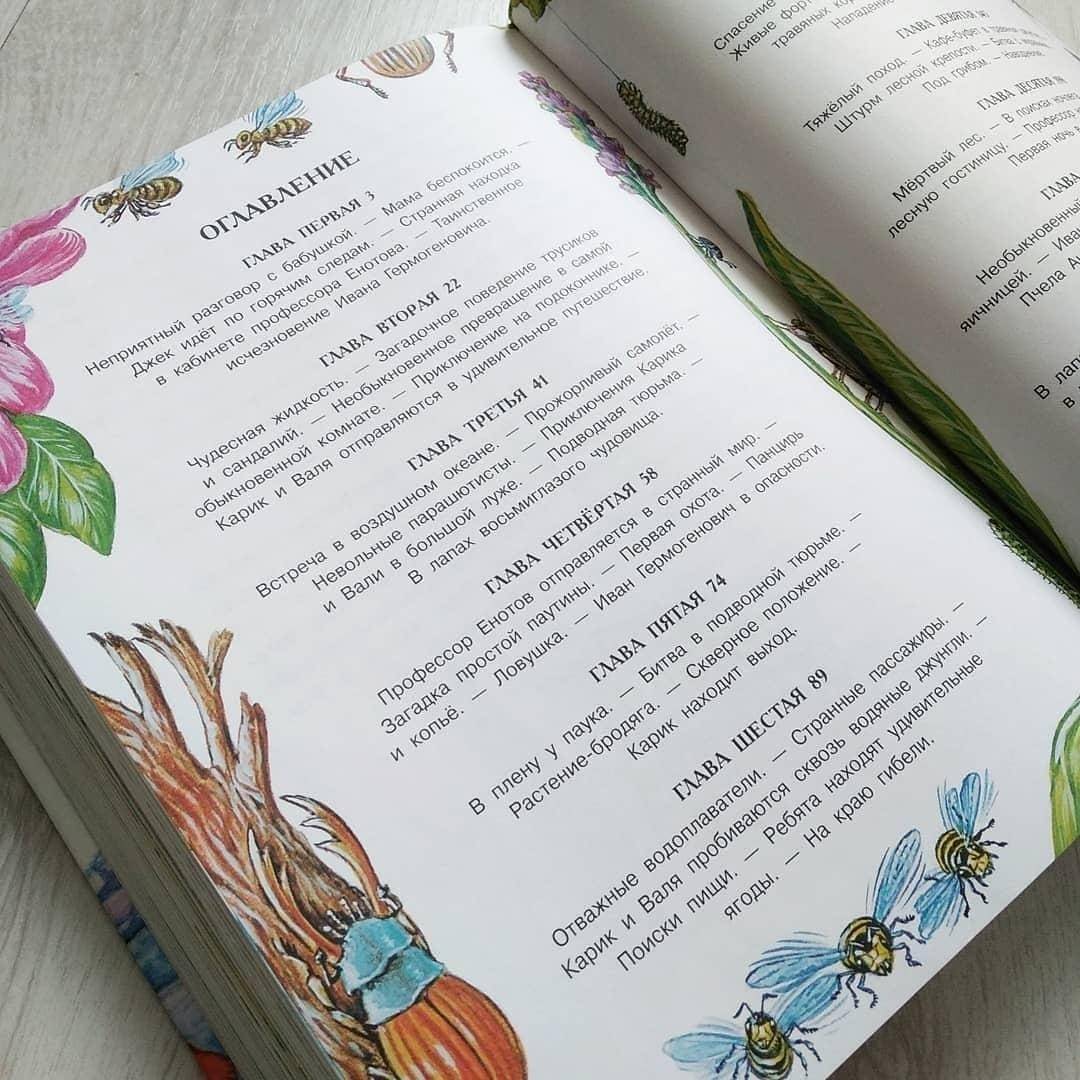 ОГЛАВЛЕНИЕ
ГЛАВА ПЕРВАЯ 3
Неприятный разговор с бабушкой. — Мама беспокоится. —
Джек идёт по горячим следам. — Странная находка
в кабинете профессора Енотова. — Таинственное
исчезновение Ивана Гермогеновича.
ГЛАВА ВТОРАЯ 22
Чудесная жидкость. — Загадочное поведение трусиков
и сандалий. — Необыкновенное превращение в самой
обыкновенной комнате. — Приключение на подоконнике. —
Карик и Валя отправляются в удивительное путешествие.
ГЛАВА ТРЕТЬЯ 41
Встреча в воздушном океане. — Прожорливый самолёт. —
Невольные парашютисты. — Приключения Карика
и Вали в большой луже. — Подводная тюрьма. —
В лапах восьмиглазого чудовища.
ГЛАВА ЧЕТВЁРТАЯ 58
Профессор Енотов отправляется в странный мир. —
Загадка простой паутины. — Первая охота. — Панцирь
и копьё. — Ловушка. — Иван Гермогенович в опасности.
ГЛАВА ПЯТАЯ 74
В плену у паука. — Битва в подводной тюрьме. —
Растение-бродяга. — Скверное положение. —
Карик находит выход.
ГЛАВА ШЕСТАЯ 89
Отважные водоплаватели. — Странные пассажиры. —
Карик и Валя пробиваются сквозь водяные джунгли. —
Поиски пищи. — Ребята находят удивительные
ягоды. — На краю гибели.
Спасение
Живые
травяных
Нападение
ГЛАВА ДЕВЯТАЯ
Тяжёлый поход. — Кафе-буфет в
Штурм лесной крепости. — Битва с
Под грибом. —
ГЛАВА ДЕСЯТАЯ
Мёртвый лес. — В поисках
лесную гостиницу. — Профессор
Первая ночь
ГЛАВА
Необыкновенный
яичницей. — Иван
Пчела
В
в